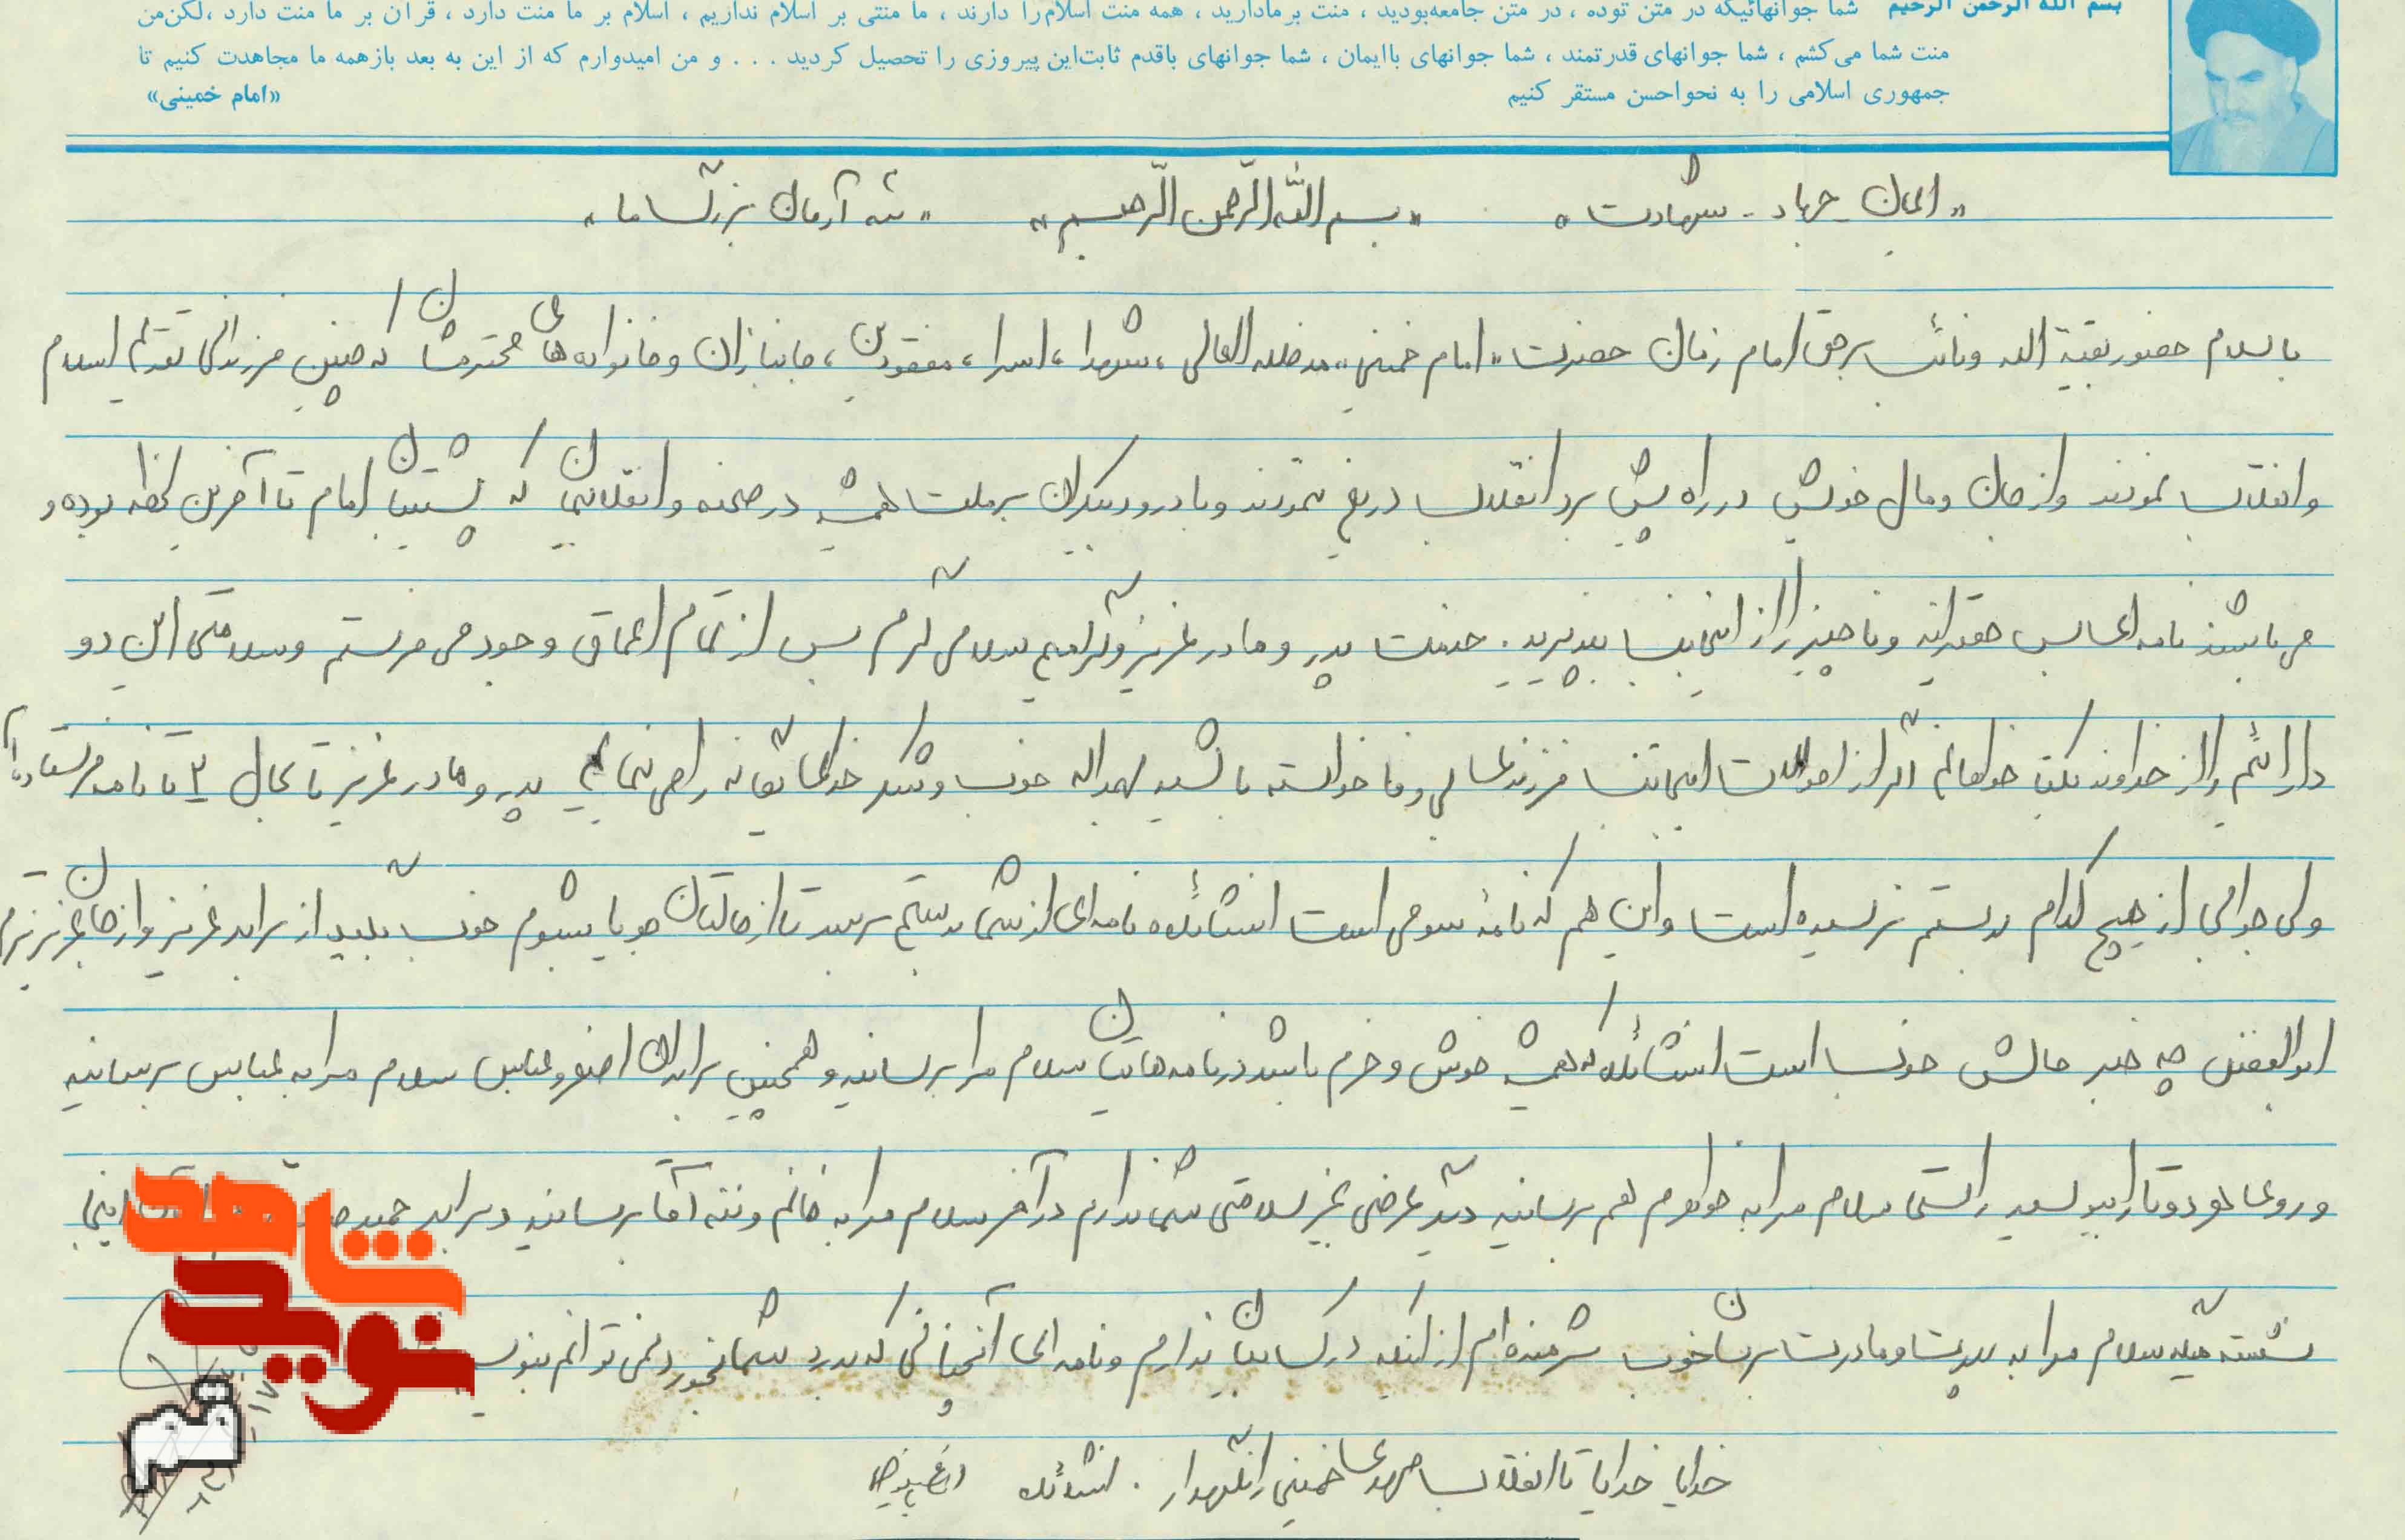 بسم الله الرحمن الرحیم شما جوانهائیکه در متن توده ، در متن جامعه‌بودید ، منت برمادارید ، همه منت اسلام‌را دارند ، ما منتی بر اسلام نداریم ، اسلام بر ما منت دارد ، قرآن بر ما منت دارد ،لکن‌من
منت شما می‌کشم ، شما جوانهای قدرتمند ، شما جوانهای باایمان ، شما جوانهای باقدم ثابت‌این پیروزی را تحصیل کردید . . . و من امیدوارم که از این به بعد بازهمه ما مجاهدت کنیم تا
جمهوری اسلامی را به نحواحسن مستقر کنیم «امام خمینی»
«ایمان - جهاد - شهادت» «بسم الله الرحمن الرحیم» «سه آرمان بزرگ ما»
با سلام حضور بقیة الله و نائب برحق امام زمان حضرت «امام خمینی» مدظله العالی ، شهدا ، اسرا ، مفقودین ، جانبازان و خانواده های محترمشان که چنین فرزندانی تقدیم اسلام
و انقلاب نمودند و از جان و مال خویش در راه پیش برد انقلاب دریغ ننمودند و با درود بیکران بر ملت همیشه در صحنه و انقلابیمان که پشتیبان امام تا آخرین لحظه بوده و
می باشند نامه ای بس حقیرانه و ناچیز را از اینجانب بپذیرید . خدمت پدر و مادر عزیز و گرامیم سلامی گرم پس از تمام اعماق وجود می فرستم و سلامتی این دو
را از خداوند یکتا خواهانم اگر از احوالات اینجانب فرزند خواسته باشید بحمداله خوب و شکر خدای پدر و مادر عزیز تا بحال ۲ تا نامه فرستاده ام
ولی جوابی از هیچ کدام بدستم نرسیده است و این هم که نامهٔ سومی است انشاءالله نامه ای از شما بدستم برسد تا از حالتان جویا بشوم خوب بگید از برادر عزیز و از جان عزیزترم
ابوالفضل چه خبر حالش خوب است انشاءالله که همیشه خوش و خرم باشد در نامه هایتان سلام مرا برسانید و همچنین برادران اصغر و عباس سلام مرا به عباس برسانید
راستی سلام مرا به خواهرم هم برسانید دیگر عرضی بغیر سلامتی شما ندارم در آخر سلام مرا به خانم و ننه آقا برسانید و برادر حمید اینجا
نشسته میگه سلام مرا به پدرت و مادرت برسان خوب شرمنده ام از اینکه درکسابتان ندارم و نامه ای آنچنانی که بدرد شما بخورد نمی توانم بنویسم
خدایا خدایا تا انقلاب مهدی خمینی را نگهدار . انشاءالله
نوید شاهد
قم